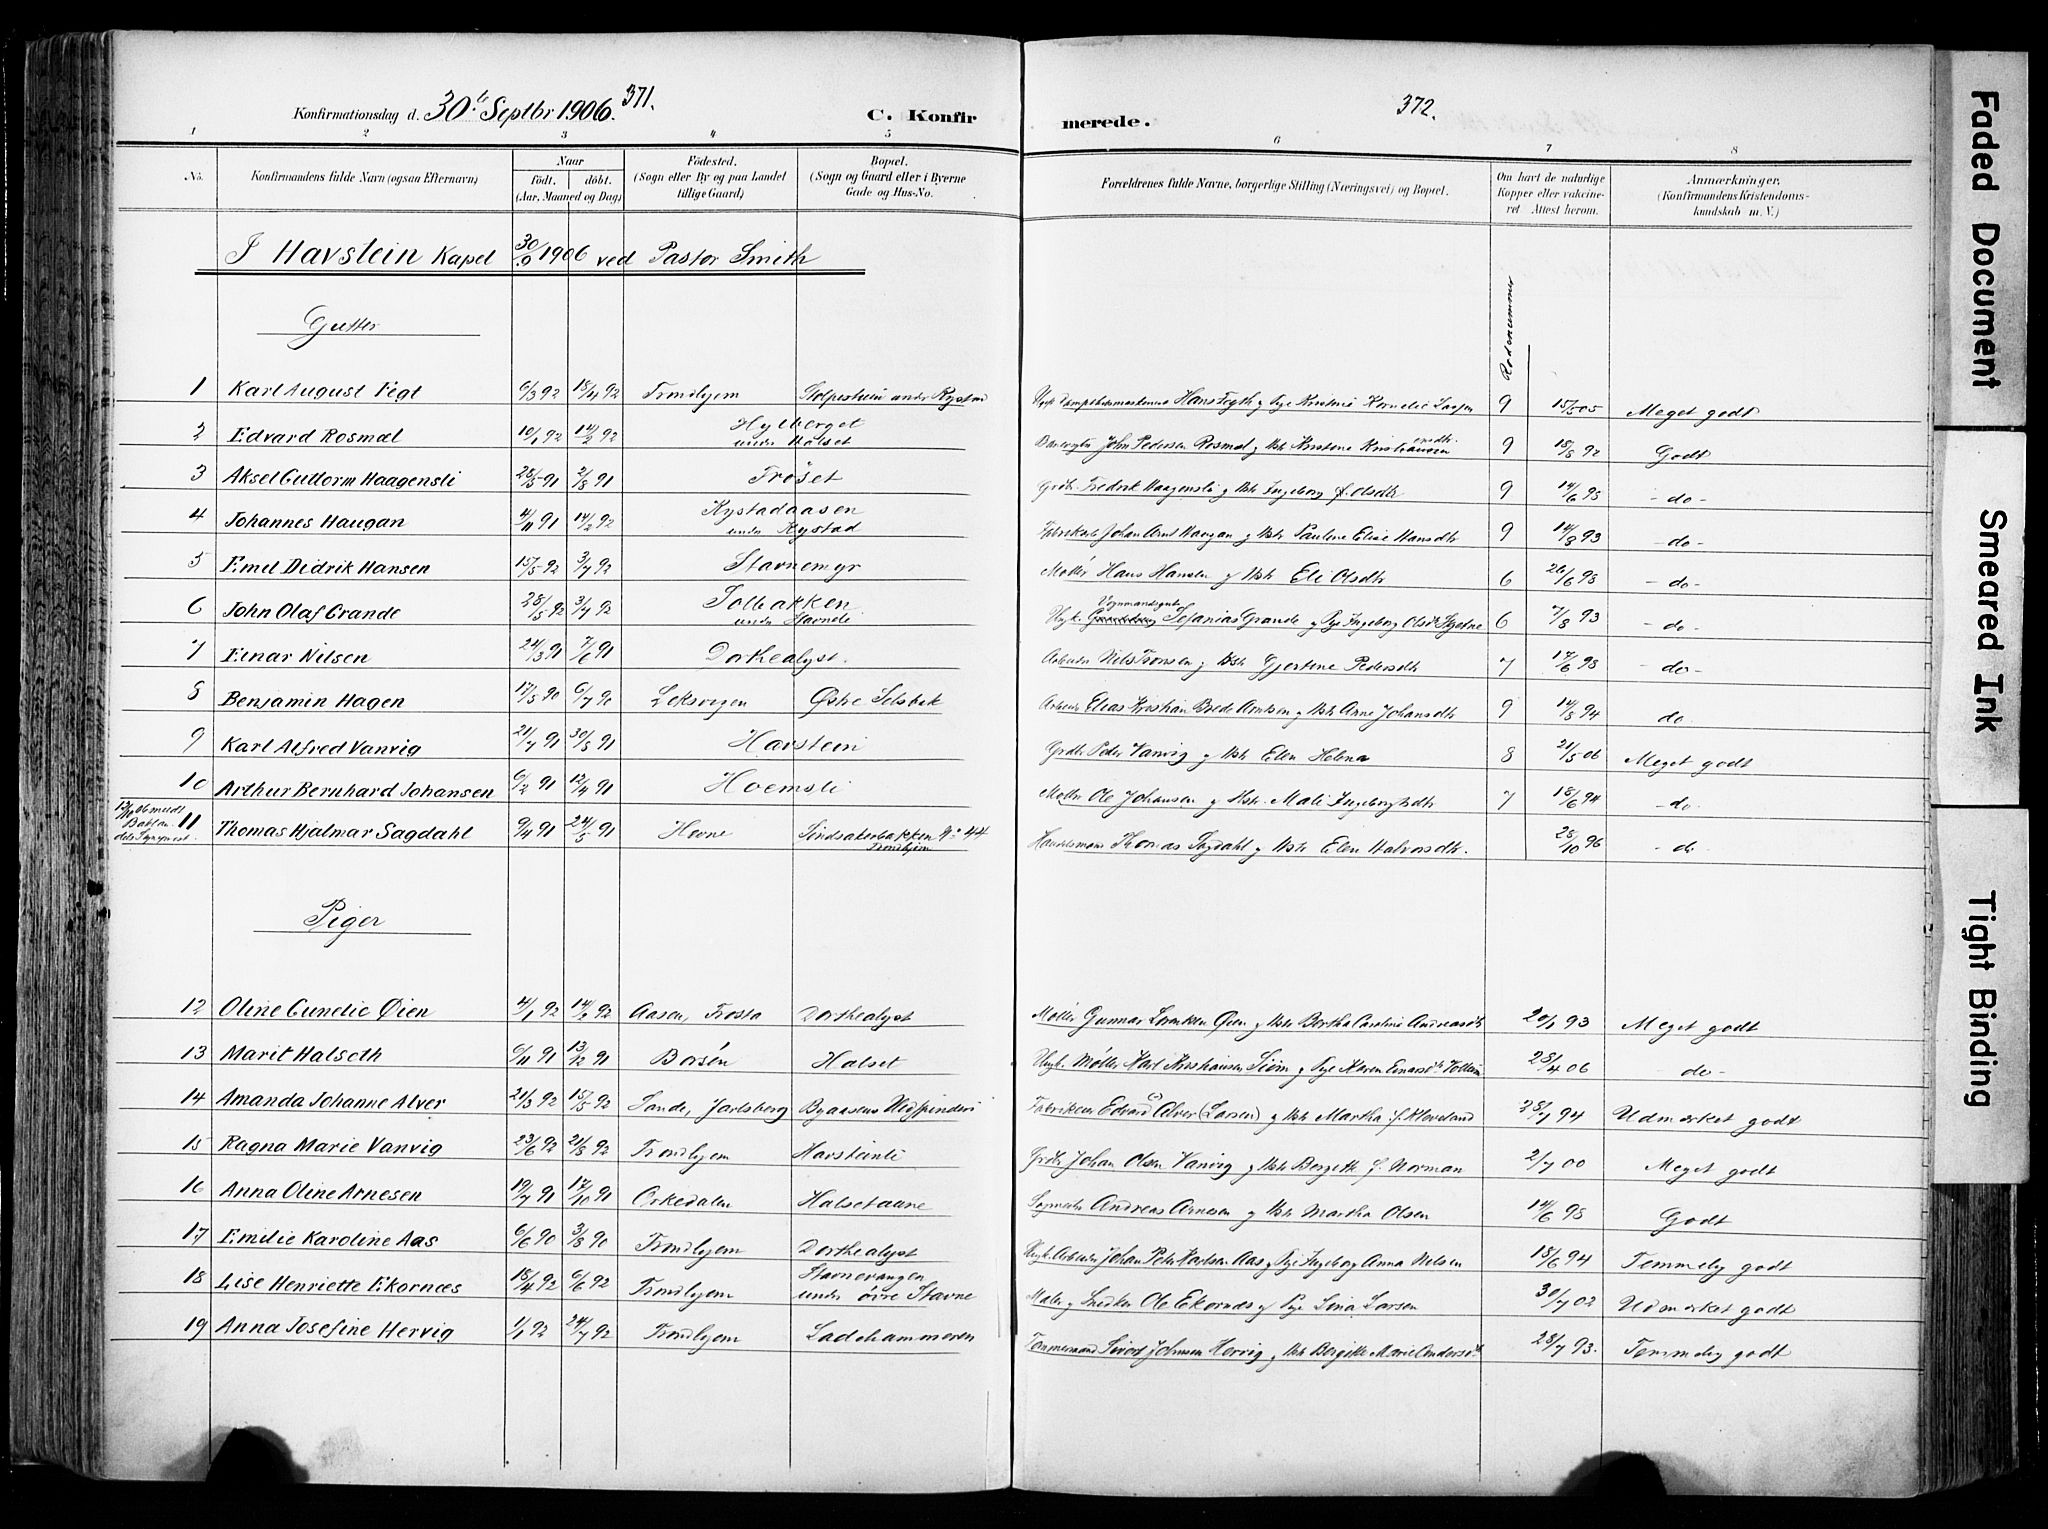 Konfirmationsdag d. 30te Septbr 1906. 371.
C. Konfir
1 2 3 4 5
No.
Konfirmandens fulde Navn (ogsaa Efternavn)
Naar
født. døbt.
(Aar, Maaned og Dag)
Fødested.
(Sogn eller By og paa Landet tillige Gaard)
Bopæl.
(Sogn og Gaard eller i Byerne Gade og Hus-No.
I Havstein Kapel 30/9 1906 ved Pastor Smith
Gutter
1 Karl August Figt 6/3 92 18/4 92 Trondhjem under Kystad
2 Edvard Rosmæl 10/1 92 14/2 92 Hylberget under Halset
3 Aksel Guttorm Haagensli 28/5 91 2/8 91 Frøset
4 Johannes Haugan 4/11 91 14/2 92 Kystadaasen under Kystad
5 Emil Didrik Hansen 15/5 92 3/7 92 Stavnemyr
6 John Olaf Grande 28/5 92 3/7 92 Solbakken under Stavneli
7 Einar Nilsen 24/3 91 7/6 91 Dorthealyst.
8 Benjamin Hagen 17/5 90 6/7 90 Leksvigen Østre Selsbak
9 Karl Alfred Vanvig 21/7 91 30/8 91 Havstein
10 Arthur Bernhard Johansen 6/2 91 12/4 91 Hoemsli
11 Thomas Hjalmar Sagdahl 9/4 91 24/5 91 Hevne Sindsakerbakken No 44 Trondhjem
Piger
12 Oline Gunelie Øien 4/1 92 14/2 92 Aasen, Frosta Dorthealyst
13 Marit Halseth 6/11 91 13/12 91 Børsen Halset
14 Amanda Johanne Alver 21/3 92 15/5 92 Sande, Jarlsberg Byaasens Uldspinderi
15 Ragna Marie Vanvig 23/6 92 21/8 92 Trondhjem Havsteinli
16 Anna Oline Arnesen 19/7 91 17/10 91 Orkedalen Halsetaune
17 Emilie Karoline Aas 6/6 90 3/8 90 Trondhjem Dorthealyst
18 Lise Henriette Ekornæs 18/4 92 6/6 92 Trondhjem Stavnevangen under øvre Stavne
19 Anna Josefine Hervig 1/1 92 24/7 92 Trondhjem Ladehammeren
372.
merede.
6 7 8
Forældrenes fulde Navne, borgerlige Stilling (Næringsvei) og Bopæl.
Om havt de naturlige Kopper eller vakcineret Attest herom.
Anmærkninger.
(Konfirmandens Kristendomskundskab m. V.)
Rodenummer
Hans Figth og Pige Kristine Kornelie 9 15/5 05 Meget godt
John Pedersen Rosmæl og Hstr Kristine Kristiansen 9 18/8 92 Godt
Grdbr. Fredrik Haagensli og Hstr Ingeborg f. Olsdtr 9 14/6 95 - do -
Fabrikarb. Johan Arnt Haugan og Hstr Pauline Elise Hansdtr 9 14/8 93 - do -
Møller Hans Hansen og Hstr Eli Olsdtr 6 26/6 98 - do -
Ungk. Vognmandsgut Sefanias Grande og Pige Ingeborg Olsdtr Skjetne 6 7/8 93 - do -
Arbeider Nils Tronsen og Hstr Gjertine Pedersdtr 7 17/6 98 - do -
Arbeider Elias Kristian Brede Arntsen og Hstr Anne Johansdtr 9 14/8 94 do
Grdbr. Peder Vanvig og Hstr Elen Helena 8 21/5 06 Meget godt
Møller Ole Johansen og Hstr. Mali Ingebrigtsdtr 7 18/6 94 - do
Handelsmand Thomas Sagdahl og Hstr Elen Halvorsdtr. 28/10 96 - do -
Møller Gunnar Lorentsen Øien og Hstr Bertha Caroline Andreasdtr 20/1 93 Meget godt
Ungk. Møller Karl Kristiansen Siem og Pige Karen Einarsdtr 28/4 06 - do -
Fabrikeier Edvard Alver (Larsen) og Hstr Martha f. Kleveland 28/7 94 Udmerket godt
Grdbr. Johan Olsen Vanvig og Hstr Bergette f. Norman 2/7 00 Meget godt
Andreas Arnesen og Hstr Martha Olsen 14/6 98 Godt
Ungk. Arbeider Johan Peter Karlsen Aas og Pige Ingeborg Anna Nilsen 18/6 94 Temmelig godt
Maler og Snedker Ole Ekornæs og Pige Lina Larsen 30/7 02 Udmerket godt
Tømmermand Sivert Johnsen Hervig og Hstr Bergitte Marie Andersdtr 28/7 93. Temmelig godt
Faded Document
Smeared Ink
Tight Binding